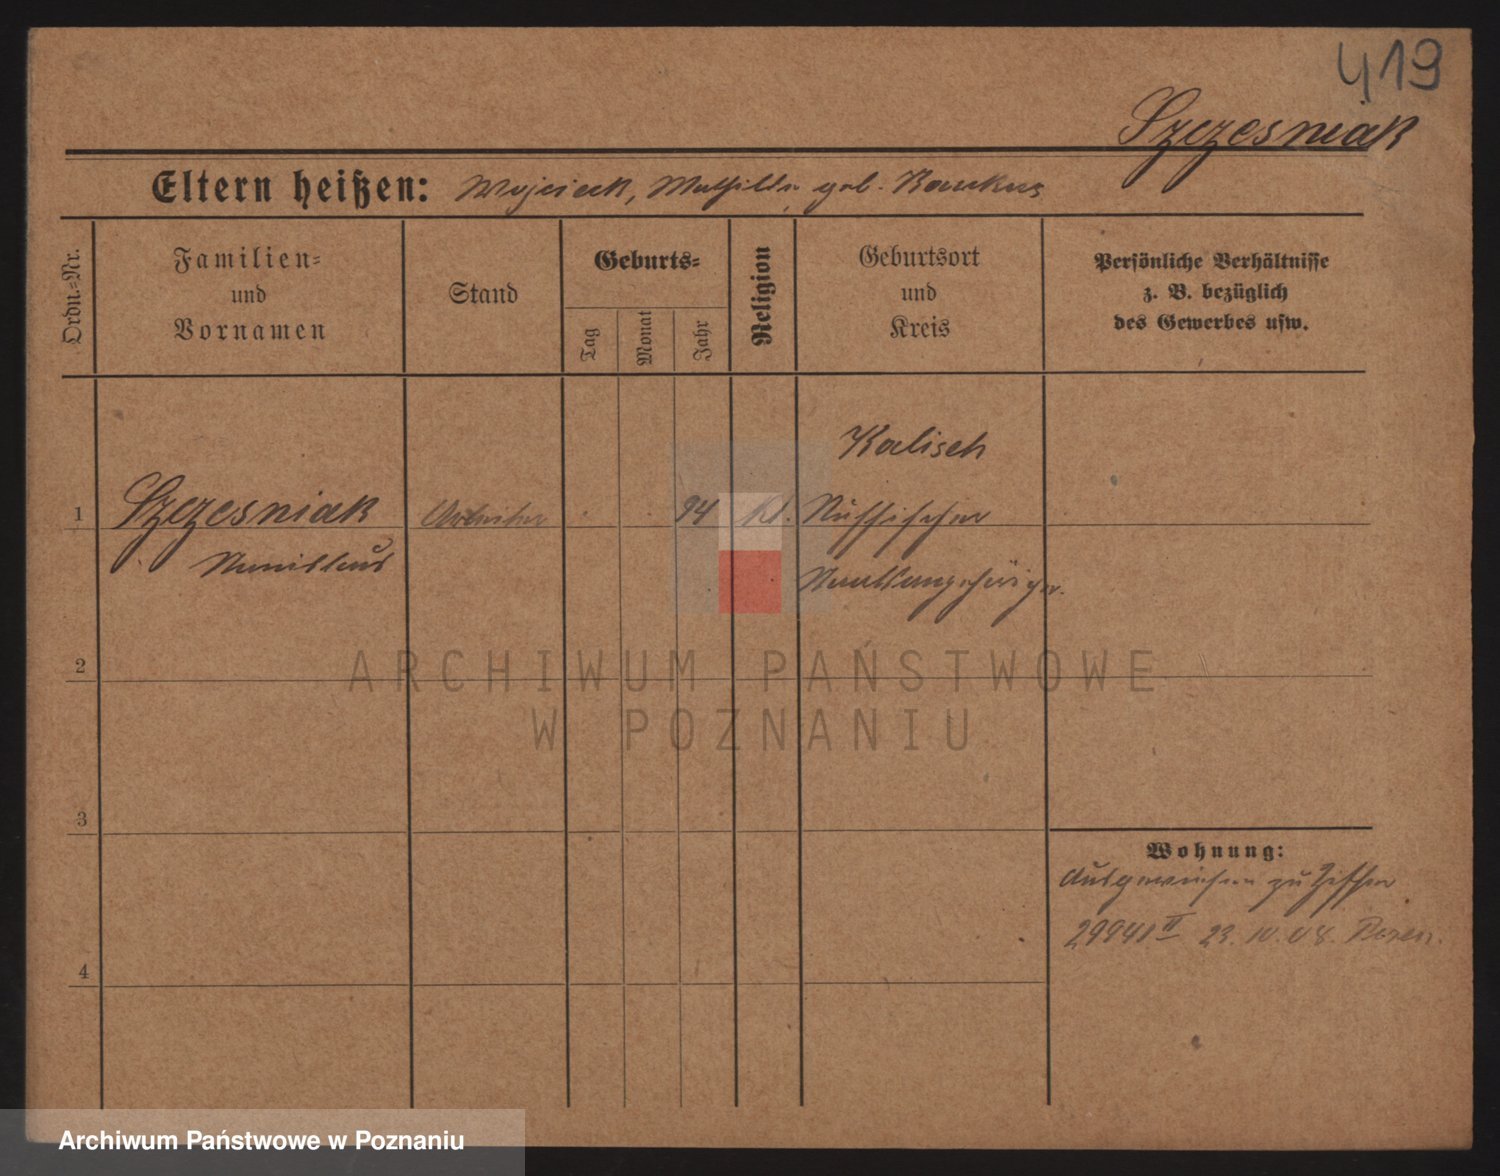 419
Szczesniak
Eltern heißen: Wojciech, Mathilde geb.
Ordn.-Nr.
Familien-
und
Vornamen
Stand
Geburts-
Tag
Monat
Jahr
Religion
Geburtsort
und
Kreis
Persönliche Verhältnisse
z. B. bezüglich
des Gewerbes usw.
Kalisch
1 Szczesniak Arbeiter 94 kt. Russischer
Stanislaus
Staatsangehöriger.
2
ARCHIWUM PAŃSTWOWE
W POZNANIU
3
Wohnung:
Ausgewiesen zu Ziffer
II 23. 10. 08. Posen.
4
Archiwum Państwowe w Poznaniu